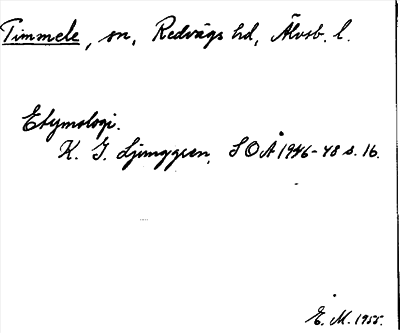 Timmele, sn, Redvägs hd, Älvsb. l.
Etymologi.
K. G. Ljunggren, SOÅ 1946-48 s. 16.
E. M. 1955.